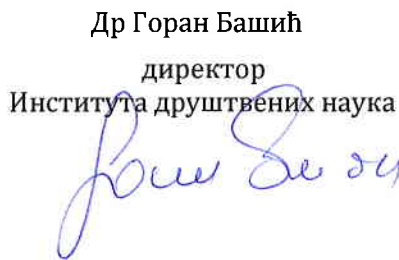 Др Горан Башић
директор
Института друштвених наука